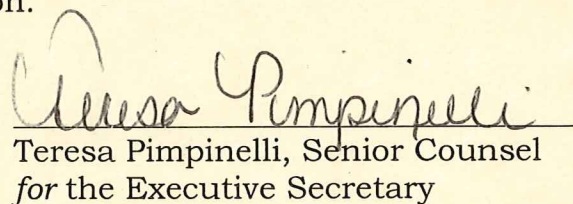 on.
Teresa Pimpinelli
Teresa Pimpinelli, Senior Counsel
for the Executive Secretary